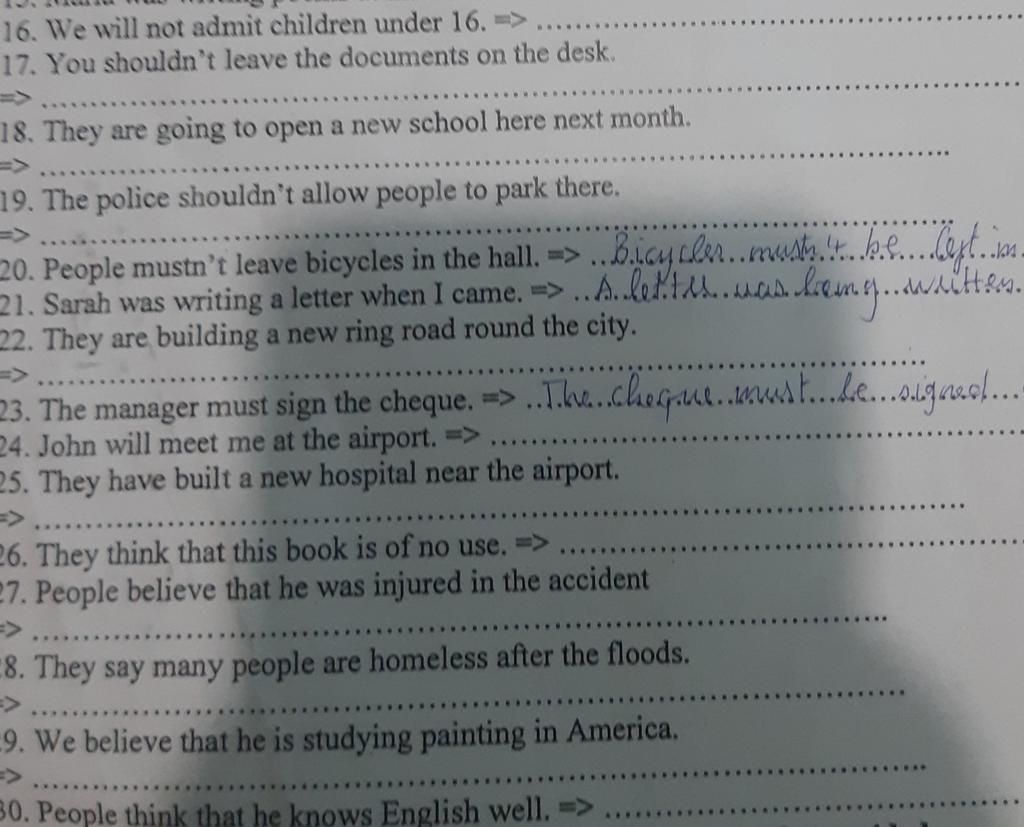 16. We will not admit children under 16. => ............
17. You shouldn't leave the documents on the desk.
=> ............
18. They are going to open a new school here next month.
=> ............
19. The police shouldn't allow people to park there.
=> ............
20. People mustn't leave bicycles in the hall. => ..Bicycles..mustn't..be...left..in.
21. Sarah was writing a letter when I came. => ..A..letter..was being..written.
22. They are building a new ring road round the city.
=> ............
23. The manager must sign the cheque. => ..The..cheque..must...be...signed...
24. John will meet me at the airport. => ............
25. They have built a new hospital near the airport.
=> ............
26. They think that this book is of no use. => ............
27. People believe that he was injured in the accident
=> ............
8. They say many people are homeless after the floods.
=> ............
9. We believe that he is studying painting in America.
=> ............
30. People think that he knows English well. => ............